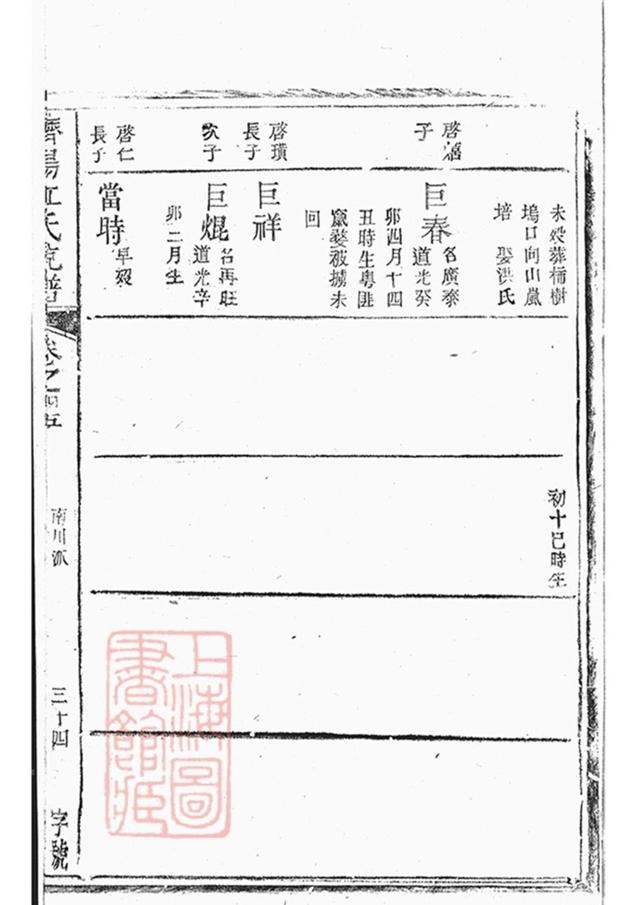 未歿葬桶樹
塢口向山嵐
培　娶洪氏
啓
子
巨春
名廣泰
道光癸
卯四月十四
丑時生粵匪
竄婺被擄未
回
啓璜
長子
巨祥
次子
巨焜
名再旺
道光辛
卯二月生
啓仁
長子
當時
早歿
初十巳時生
濟陽江氏宗譜
卷之四五
南川派
三十四
字號
上海圖
書館藏